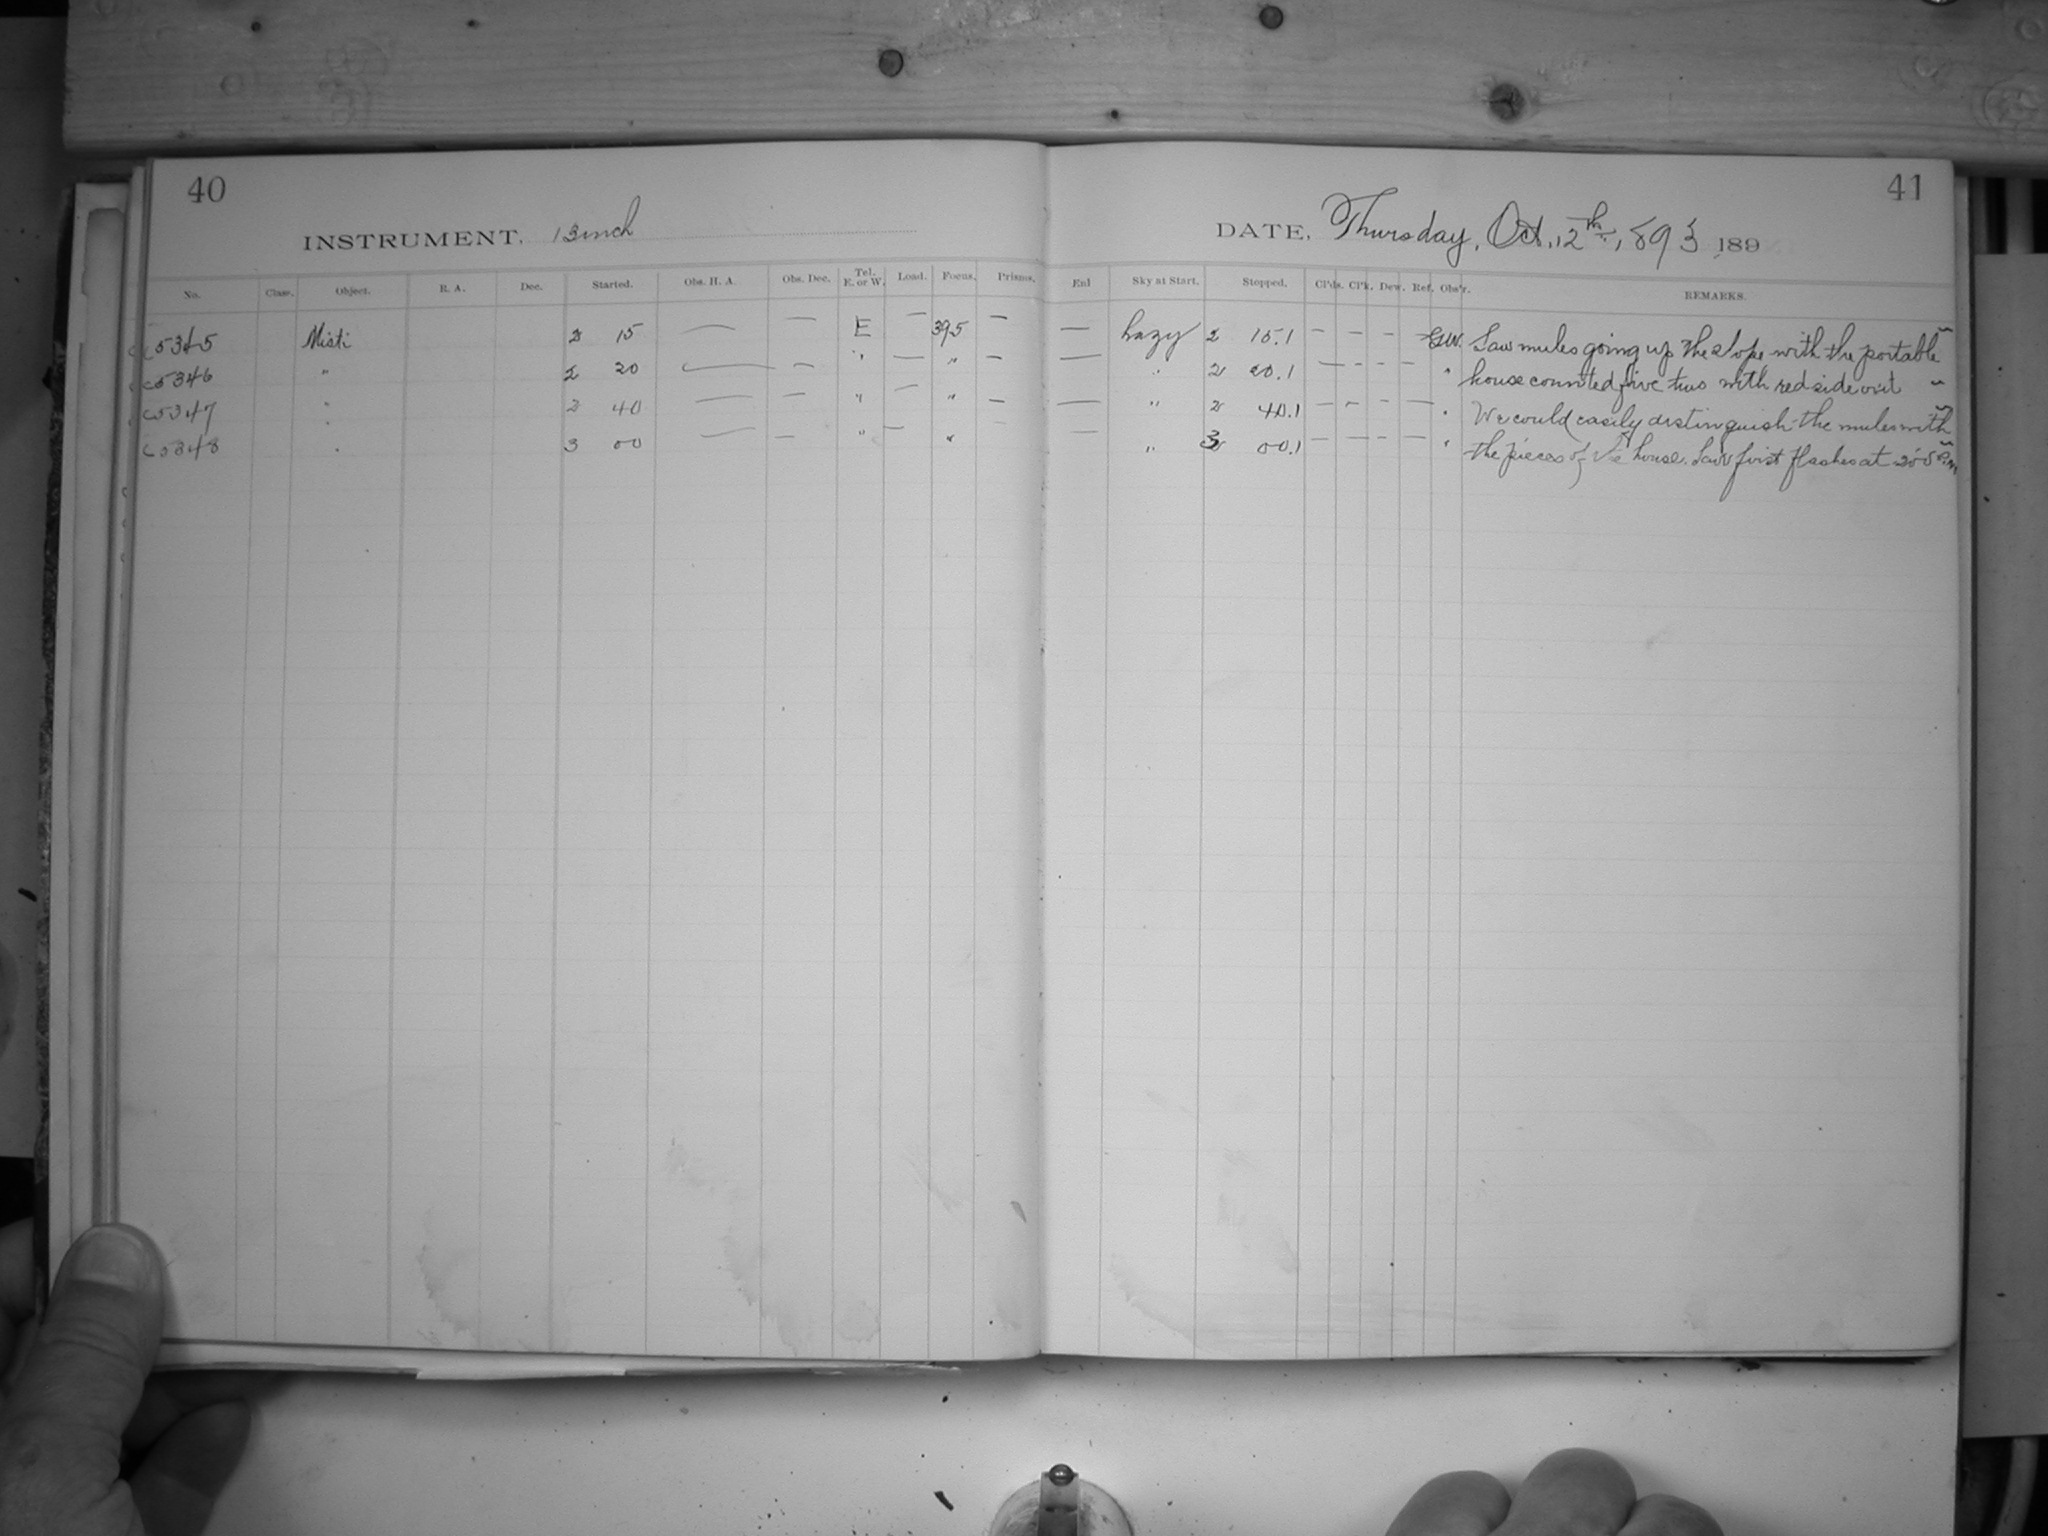 40
41
INSTRUMENT, 13 inch
DATE, Thursday, Oct. 12th, 1893, 189
No. Class. Object. R. A. Dec. Started. Obs. H. A. Obs. Dec. Tel. E. or W. Load. Focus. Prisms. Enl Sky at Start. Stopped. Cl'ds. Cl'k. Dew. Ref. Obs'r. REMARKS.
C 5345 Misti 2 15 — — E — 395 — — hazy 2 15.1 – – – – Saw mules going up the slope with the portable
C 5346 " 2 20 — — " — " — — " 2 20.1 – – – – " house counted five two with red side out
C 5347 " 2 40 — — " — " — — " 2 40.1 – – – – " We could easily distinguish the mules with
C 5348 " 3 00 — — " — " — — " 3 00.1 – – – – " the pieces of the house. Saw first flashes at